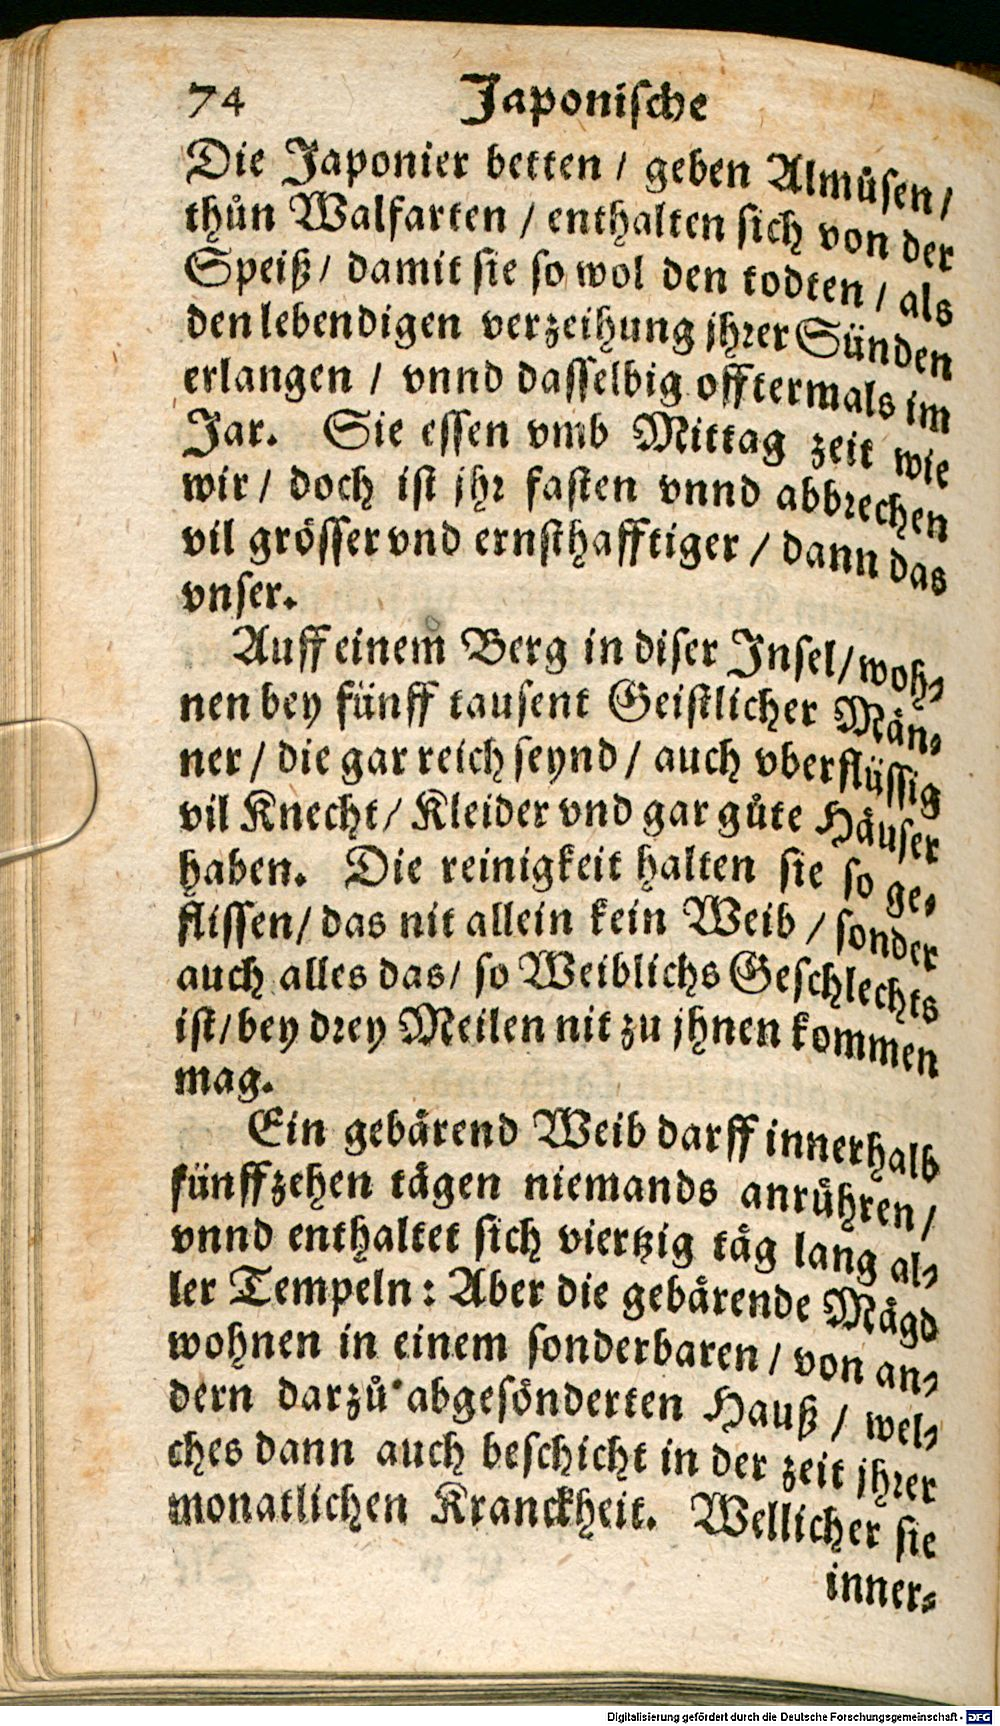 74 Japonische
Die Japonier betten / geben Almůsen /
thůn Walfarten / enthalten sich von der
Speiß / damit sie so wol den todten / als
den lebendigen verzeihung jhrer Sünden
erlangen / vnnd dasselbig offtermals im
Jar. Sie essen vmb Mittag zeit wie
wir / doch ist jhr fasten vnnd abbrechen
vil grösser vnd ernsthafftiger / dann das
vnser.
Auff einem Berg in diser Insel / woh-
nen bey fünff tausent Geistlicher Män-
ner / die gar reich seynd / auch vberflüssig
vil Knecht / Kleider vnd gar gůte Häuser
haben. Die reinigkeit halten sie so ge-
flissen / das nit allein kein Weib / sonder
auch alles das / so Weiblichs Geschlechts
ist / bey drey Meilen nit zu jhnen kommen
mag.
Ein gebärend Weib darff innerhalb
fünffzehen tägen niemands anrůhren /
vnnd enthaltet sich viertzig täg lang al-
ler Tempeln: Aber die gebärende Mägd
wohnen in einem sonderbaren / von an-
dern darzů abgesönderten Hauß / wel-
ches dann auch beschicht in der zeit jhrer
monatlichen Kranckheit. Wellicher sie
inner-
Digitalisierung gefördert durch die Deutsche Forschungsgemeinschaft - DFG